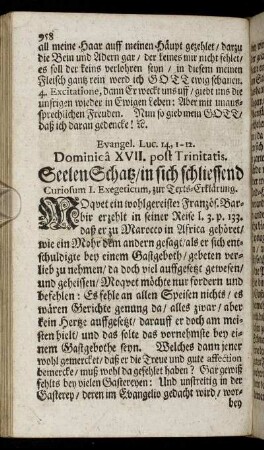 958
all meine Haar auff meinen Häupt gezehlet / darzu
die Bein und Adern gar / der keines mir nicht fehlet /
es soll der keins verlohren seyn / in diesem meinen
Fleisch gantz rein werd ich GOTT ewig schauen.
4. Excitatione, dann Er weckt uns uff / giebt uns die
unsrigen wieder in Ewigen Leben: Aber mit unauß-
sprechlichen Freuden. Nun so greb mein GOTT /
daß ich daran gedencke! &c.
Evangel. Luc. 14, 1-12.
Dominicâ XVII. post Trinitatis.
Seelen Schatz / in sich schliessend
Curiosum I. Exegeticum, zur Texts-Erklärung.
MOqvet ein wohlgereister Französ. Bar-
bir erzehlt in seiner Reise l. 3. p. 133.
daß er zu Marocco in Africa gehöret /
wie ein Mohr dem andern gesagt / als er sich ent-
schuldigte bey einem Gastgeboth / gebeten ver-
lieb zu nehmen / da doch viel auffgesetzt gewesen /
und geheissen / Moqvet möchte nur fordern und
befehlen: Es fehle an allen Speisen nichts / es
wären Gerichte genung da / alles zwar / aber
kein Hertz auffgesetzt / darauff er doch am mei-
sten hielt / und das solte das vornehmste bey ei-
nem Gastgebothe seyn. Welches dann jener
wohl gemercket / daß er die Treue und gute affection
bemercke / muß wohl da gefehlet haben? Gar gewiß
fehlts bey vielen Gastereyen: Und unstreitig in der
Gasterey / deren im Evangelio gedacht wird / wor-
bey